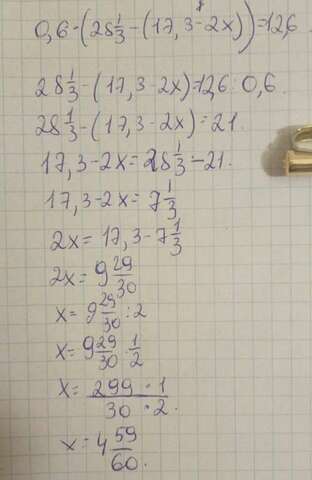 0,6 · (28 1/3 - (17,3 - 2x)) = 12,6
28 1/3 - (17,3 - 2x) = 12,6 : 0,6.
28 1/3 - (17,3 - 2x) = 21.
17,3 - 2x = 28 1/3 - 21.
17,3 - 2x = 7 1/3
2x = 17,3 - 7 1/3
2x = 9 29/30
x = 9 29/30 : 2
x = 9 29/30 · 1/2
x = 299 · 1 / 30 · 2.
x = 4 59/60.